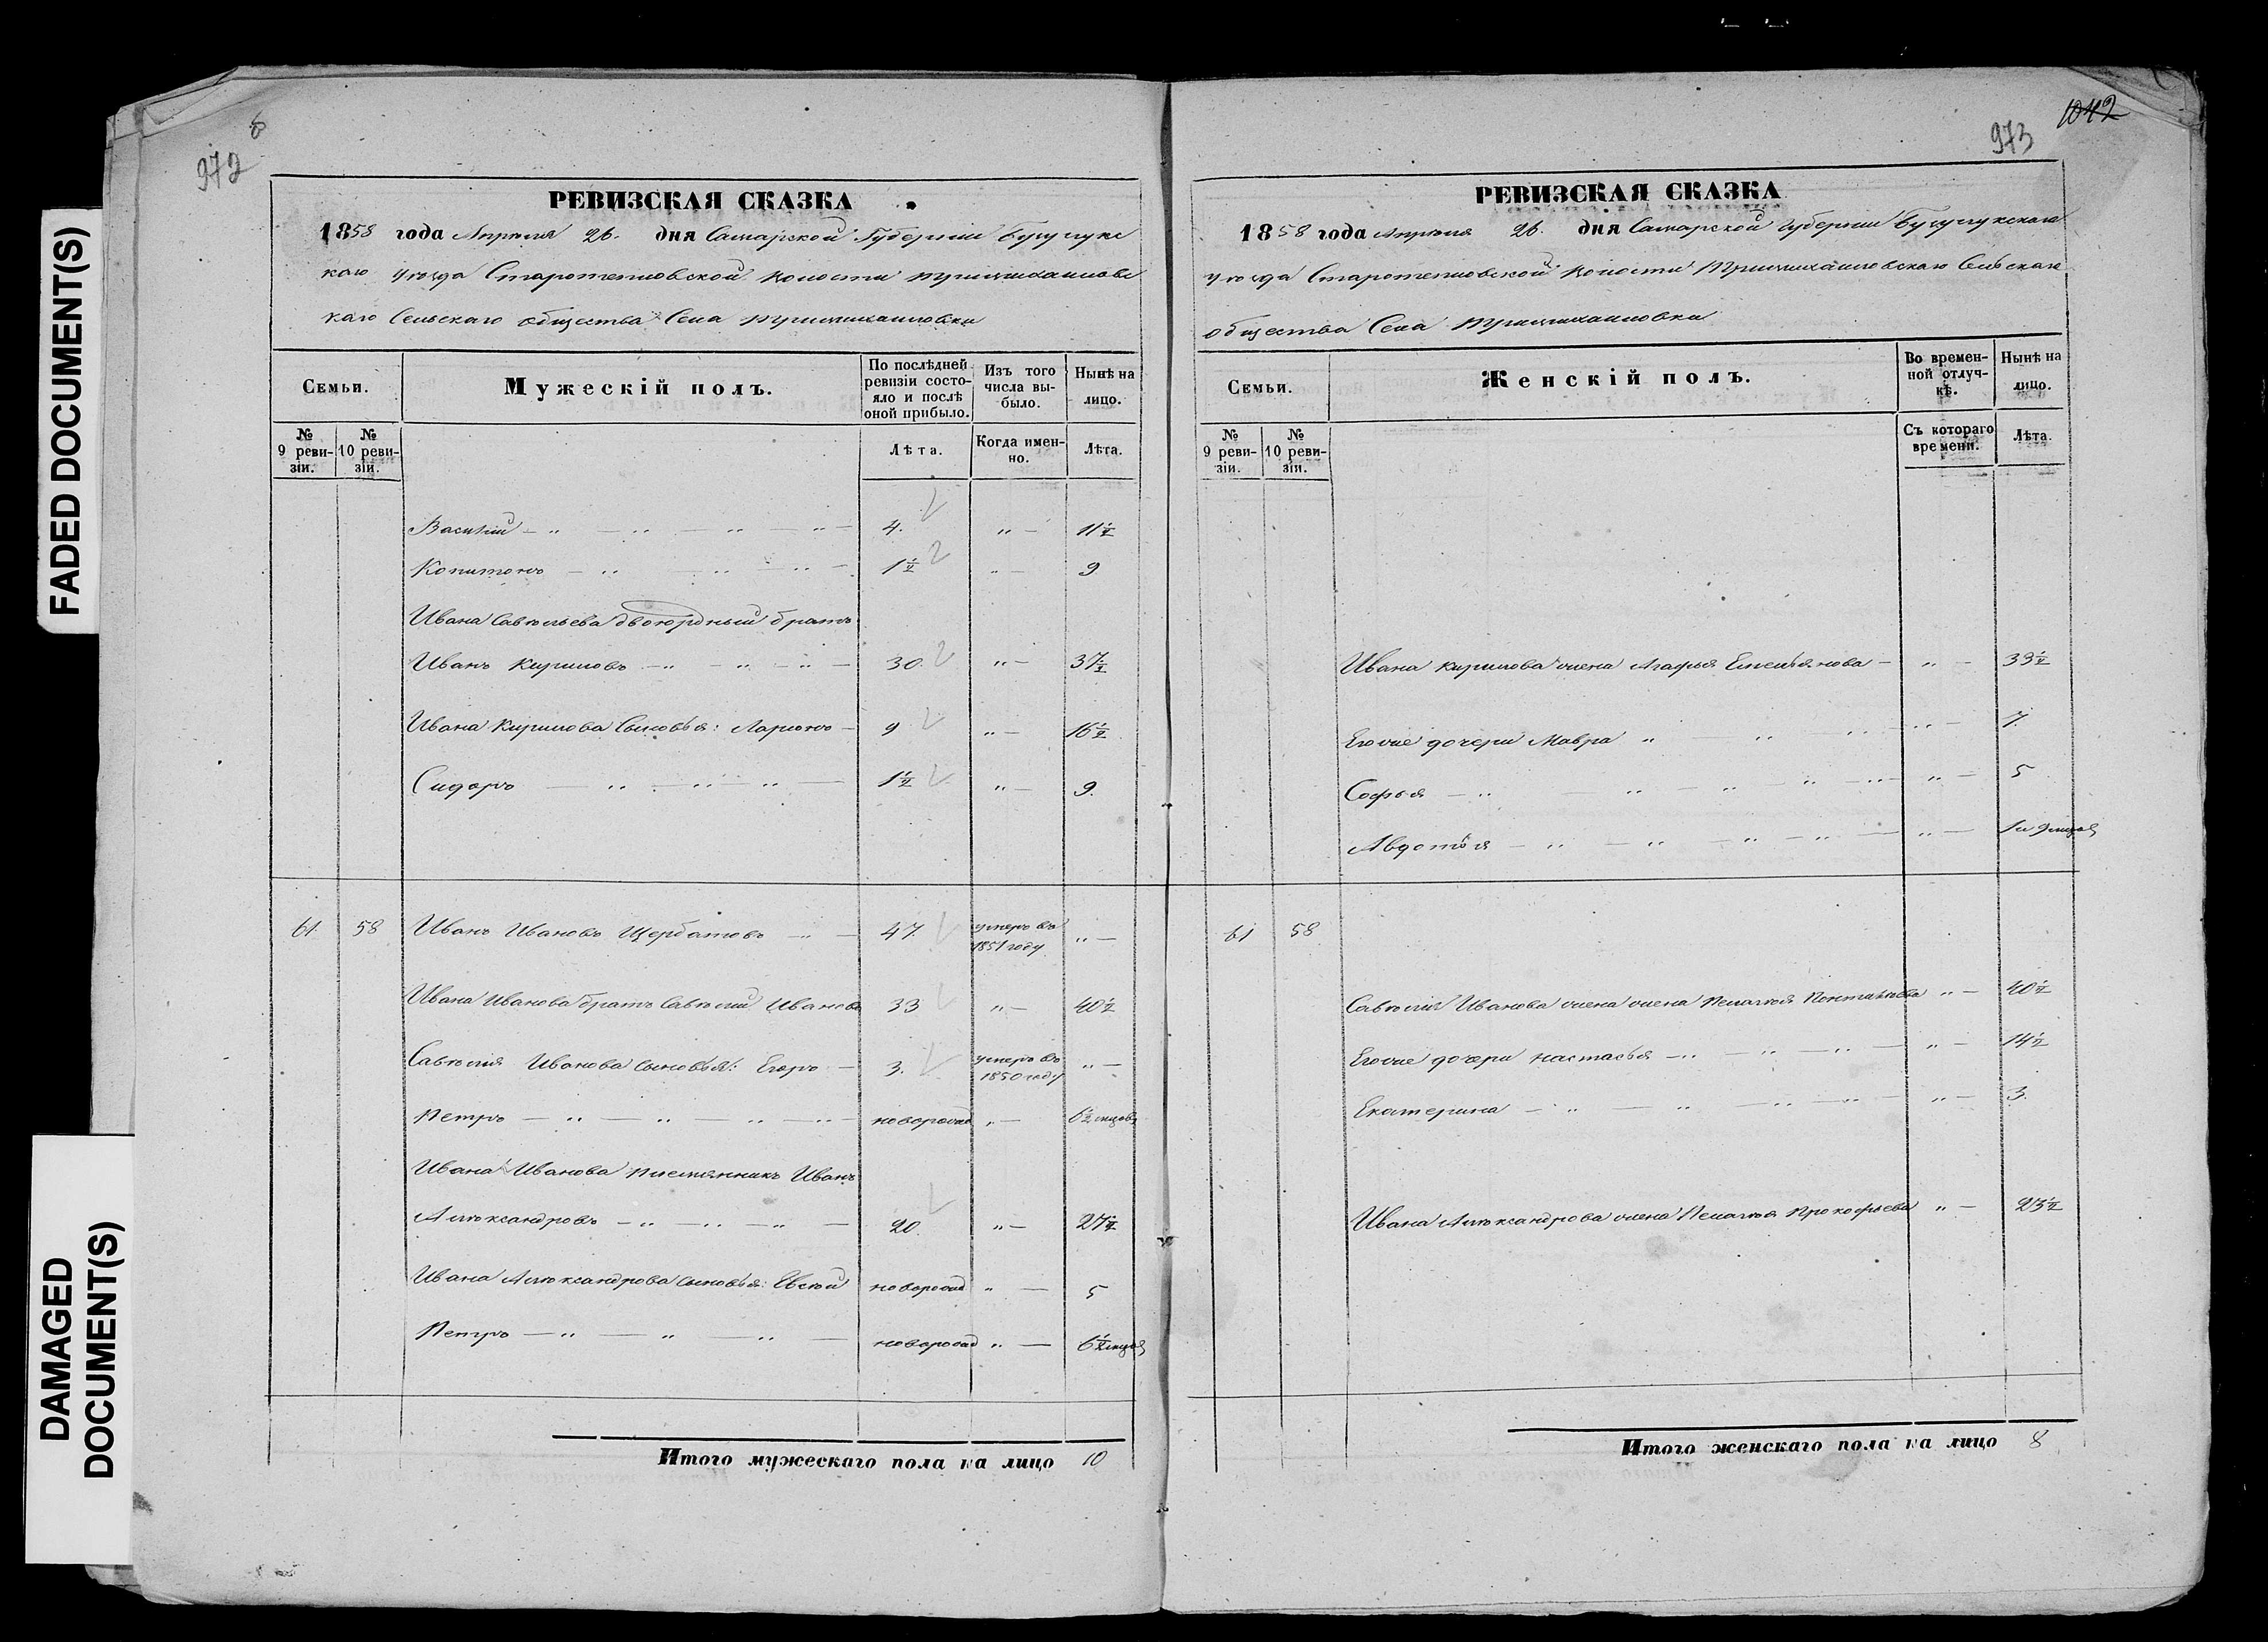 FADED DOCUMENT(S)
DAMAGED
DOCUMENT(S)
6
972
РЕВИЗСКАЯ СКАЗКА
1858 года Апрѣля 26. дня Самарской Губерніи Бузулукс
каго уѣзда Старотепловской волости
каго Сельскаго общества Села
Семьи.
Мужескій полъ.
По послѣдней
ревизіи состо-
яло и послѣ
оной прибыло.
Изъ того
числа вы-
было.
Нынѣ на
лицо.
№
9 реви-
зіи.
№
10 реви-
зіи.
Лѣта.
Когда имен-
но.
Лѣта.
Василій — „ — „ — „ — „ — 4. „ — 11½
Копитонъ — „ — „ — „ — 1½ „ — 9
Ивана Савельева двоюрдный братъ
Иванъ Кириловъ — „ — „ — „ — 30. „ — 37½
Ивана Кирилова Сыновья: Ларіонъ — 9 „ — 16½
Сидоръ — „ — „ — „ — 1½ „ — 9.
61 58 Иванъ Ивановъ Щербатовъ — „ — 47. умеръ въ 1851 году „ —
Ивана Иванова братъ Савѣлій Ивановъ 33 „ — 40½
Савѣлія Иванова Сыновья: Егоръ — 3. умеръ въ 1850 году „ —
Петръ — „ — „ — „ — „ — новорожд „ — 6½ мцовъ
Ивана Иванова племянникъ Иванъ
Алѣксандровъ — „ — „ — „ — 20. „ — 27½
Ивана Алѣксандрова Сыновья: новорожд „ — 5
Петръ — „ — „ — „ — новорожд „ — 6½ мцов
Итого мужескаго пола на лицо 10
1042
973
РЕВИЗСКАЯ СКАЗКА
1858 года Апрѣля 26. дня Самарской Губерніи Бузулукскаго
уѣзда Старотепловской волости Сельскаго
общества Села
Семьи.
Женскій полъ.
Во времен-
ной отлуч-
кѣ.
Нынѣ на
лицо.
№
9 реви-
зіи.
№
10 реви-
зіи.
Съ котораго
времени.
Лѣта.
Ивана Кирилова жена Агафья Емельянова — „ — 33½
Егоже дочери Мавра „ — „ — „ — „ — 7.
Софья — „ — „ — „ — „ — „ — „ — 5
Авдотья — „ — „ — „ — „ — „ — 1 и 9 мцов
61 58
Савѣлія Иванова жена жена Пелагѣя „ — 40½
Егоже дочери Настасья — „ — „ — „ — „ — 14½
Екатерина — „ — „ — „ — „ — „ — 3.
Ивана Алѣксандрова жена Пелагѣя Прокофьева „ — 23½
Итого женскаго пола на лицо 8